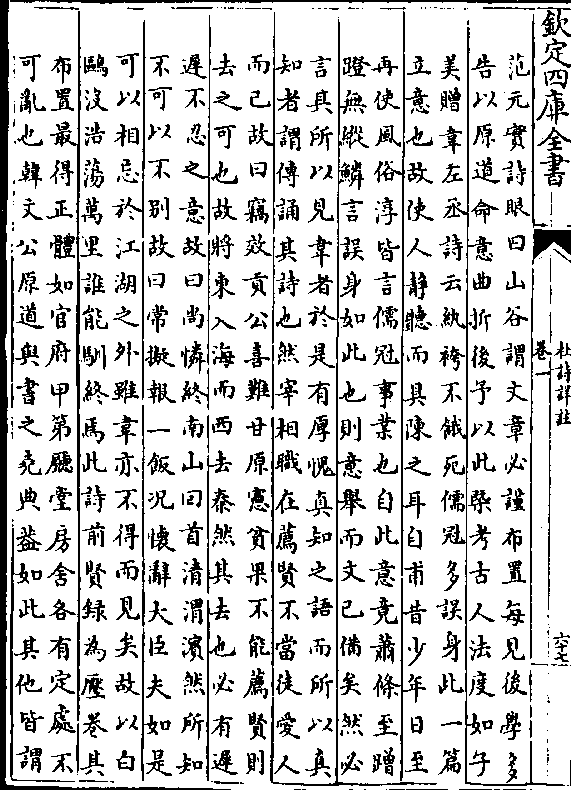 欽定四庫全書
杜詩詳註
卷一
六十七
范元實詩眼曰山谷謂文章必謹布置每見後學多
告以原道命意曲折後予以此槩考古人法度如子
美贈韋左丞詩云紈袴不餓死儒冠多誤身此一篇
立意也故使人静聽而具陳之耳自甫昔少年日至
再使風俗淳皆言儒冠事業也自此意竟蕭條至蹭
蹬無縱鱗言誤身如此也則意舉而文已備矣然必
言其所以見韋者於是有厚愧真知之語而所以真
知者謂傳誦其詩也然宰相職在薦賢不當徒愛人
而已故曰竊效貢公喜難甘原憲貧果不能薦賢則
去之可也故將東入海而西去秦然其去也必有遲
遲不忍之意故曰尚憐終南山回首清渭濱然所知
不可以不别故曰常擬報一飯况懷辭大臣夫如是
可以相忘於江湖之外雖韋亦不得而見矣故以白
鷗沒浩蕩萬里誰能馴終焉此詩前賢録為壓卷其
布置最得正體如官府甲第廳堂房舍各有定處不
可亂也韓文公原道與書之堯典葢如此其他皆謂